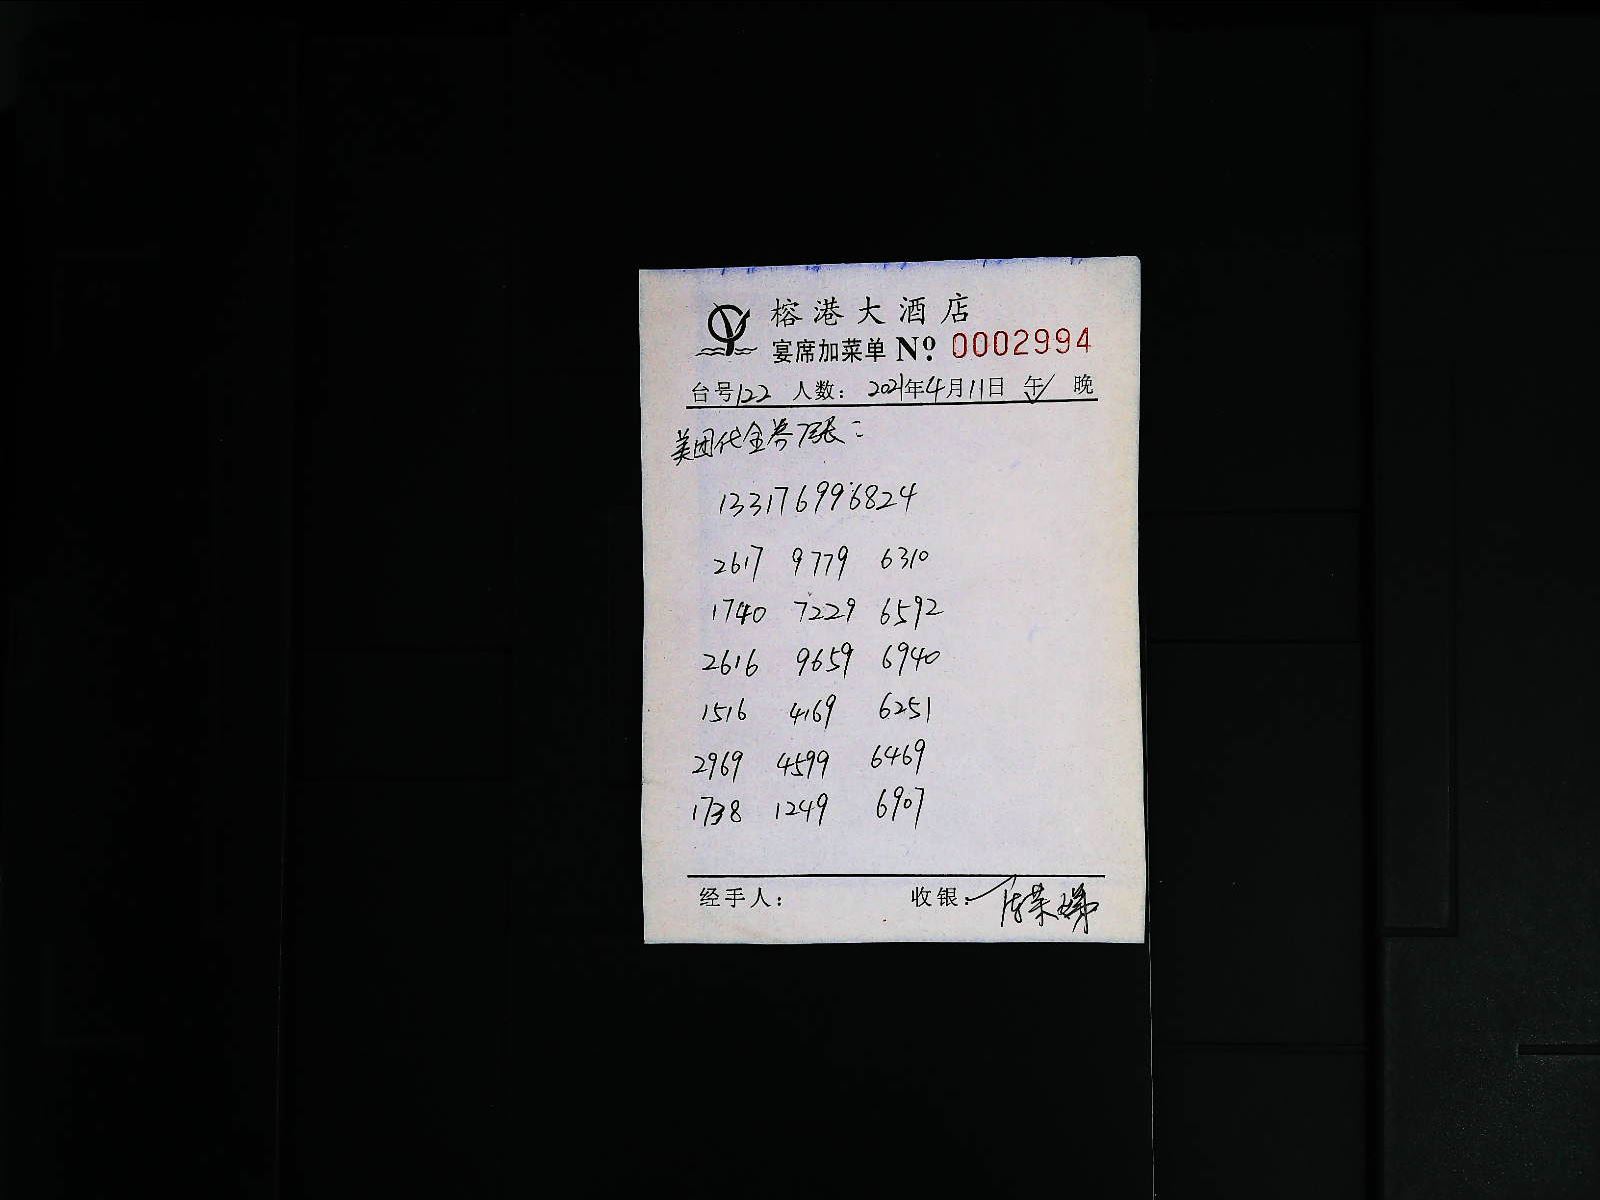 榕港大酒店
宴席加菜单 Nº 0002994
台号122 人数： 2021年4月11日 午✓ 晚
美团代金券7张：
133176996824
2617 9779 6310
1740 7229 6592
2616 9659 6940
1516 4169 6251
2969 4599 6469
1738 1249 6907
经手人： 收银：